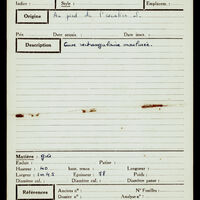 Indice : Style : Emplacem. :
Origine Au pied de l'escalier
Prix Date acquis. : Date inscr. :
Description Cuve rectangulaire
Matière : grès
Endun : Patine :
Hauteur : 40 haut. conser. : Longueur :
Largeur : 1m45 Epaisseur : 88 Profondeur :
Diamètre col. : Diamètre panse :
Références Ancien n° : N° Fouilles :
Dossier n° : Analyse n° :